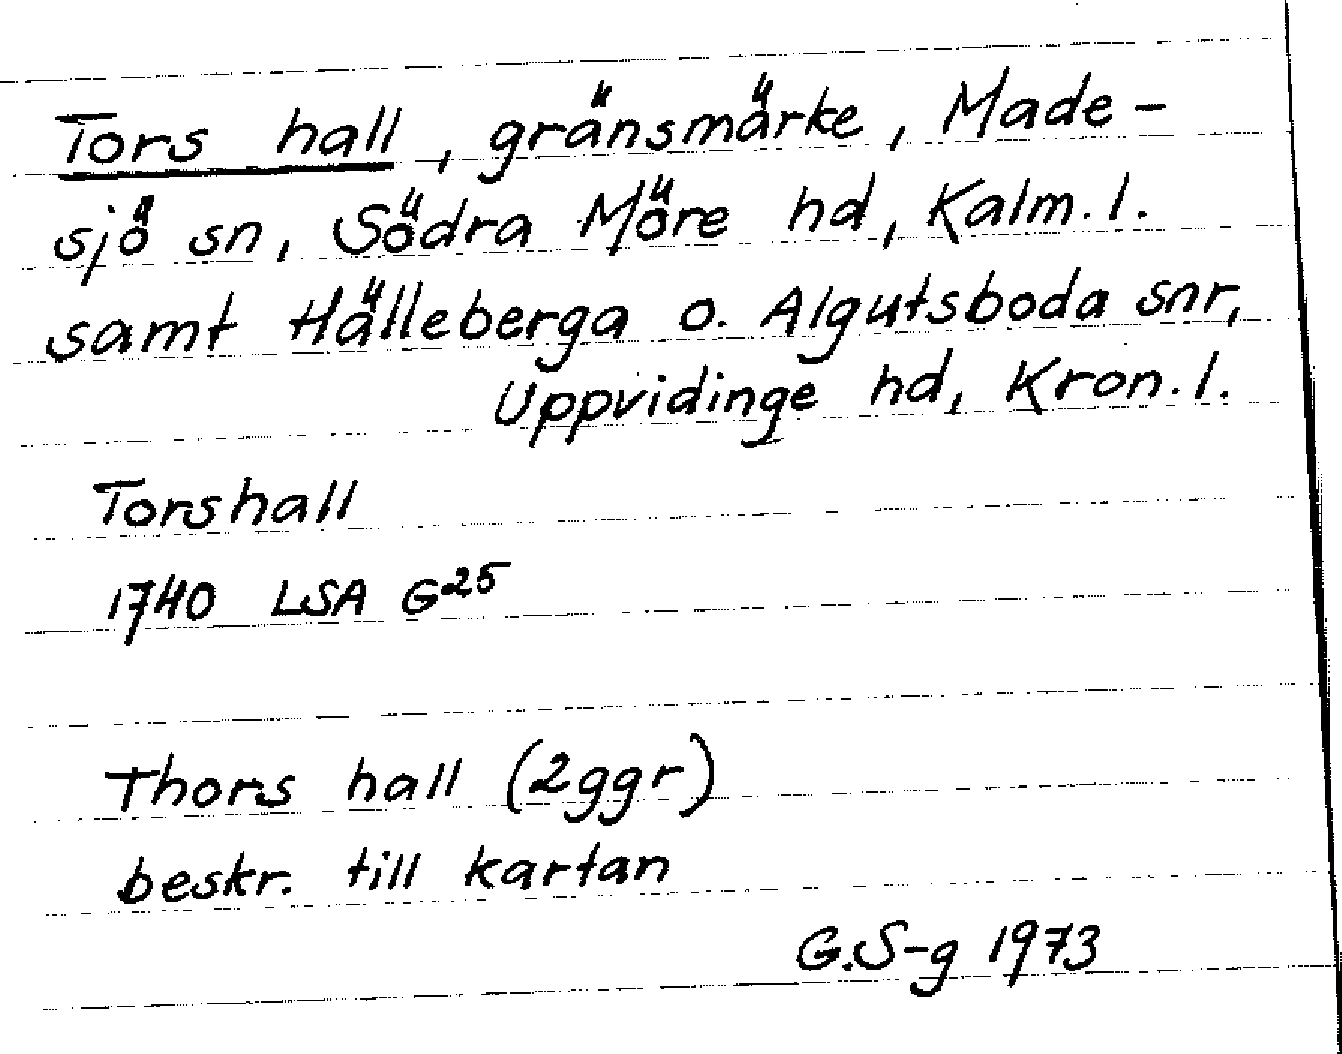 Tors hall, gränsmärke, Made-
sjö sn, Södra Möre hd, Kalm. l.
samt Hälleberga o. Algutsboda snr,
Uppvidinge hd, Kron. l.
Torshall
1740 LSA G25
Thors hall (2ggr)
beskr. till kartan
G.S-g 1973